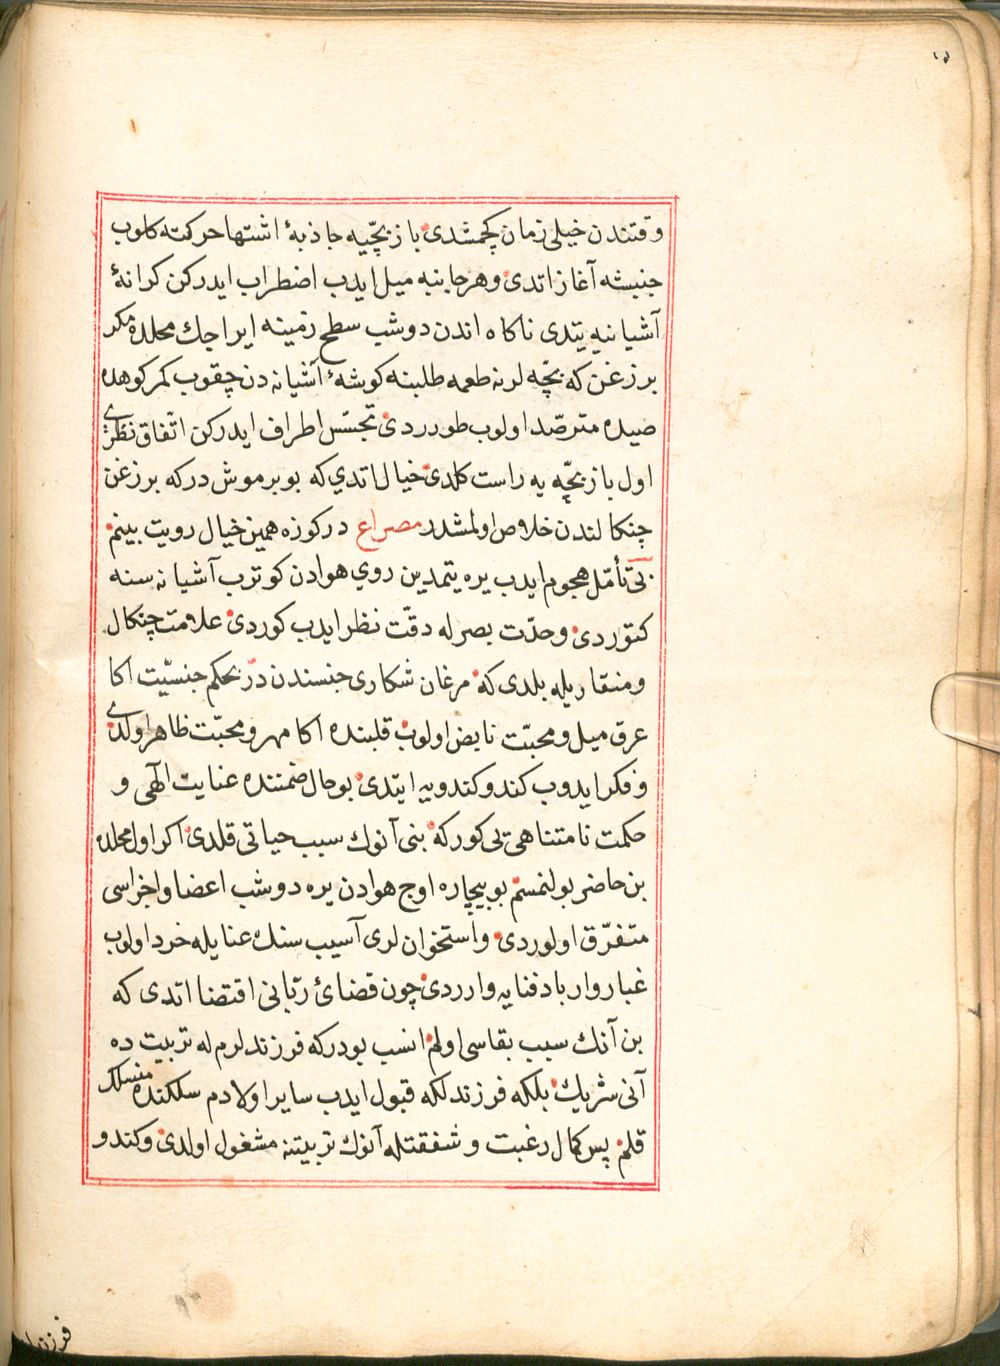 وقتندن خیلی زمان کچمشدی باز بچّیه جاذبهٔ اشتها حرکته کلوب
جنبشه آغاز اتدی وهر جانبه میل ایدب اضطراب ایدرکن کرانهٔ
آشیانیه یتدی ناکاه اندن دوشب سطح زمینه ایراجك محلده مکر
بر زغن که بچّه لرنه طعمه طلبنه کوشهٔ آشیانه دن چقوب کمرکوهده
صیده مترصّد اولوب طورردی تجسّس اطراف ایدرکن اتّفاق نظری
اول باز بچّه یه راست کلدی خیال اتدی که بو بر موش درکه بر زغن
چنکالندن خلاص اولمشدر مصراع در کوزه همین خیال رویت بینم
بی تأمّل هجوم ایدب یره یتمدین روی هوادن کوترب آشیانه سنه
کتوردی وحدّت بصرله دقّت نظر ایدب کوردی علامت چنکال
ومنقاریله بلدی که مرغان شکاری جنسندن در بحکم جنسیّت اکا
عرق میل ومحبّت نابض اولوب قلبنده اکا مهر ومحبّت ظاهر اولدی
وفکر ایدوب کندو کندویه ایتدی بو حال ضمتنده عنایت الٓهی و
حکمت نامتناهی یی کورکه بنی آنوك سبب حیاتی قلدی اکر اول محلده
بن حاضر بولنمسم بو بیچاره اوج هوادن یره دوشب اعضا واجزاسی
متفرّق اولوردی واستخوان لری آسیب سنك عنایله خرد اولوب
غباروار باد فنایه واردی چون قضائ ربّانی اقتضا اتدی که
بن آنك سبب بقاسی اولم انسب بودرکه فرزندلرم له تربیت ده
آنی شریك بلکه فرزندلکه قبول ایدب سایر اولادم سلکنده منسلك
قلم پس کمال رغبت وشفقتله آنوك تربیتنه مشغول اولدی وکندو